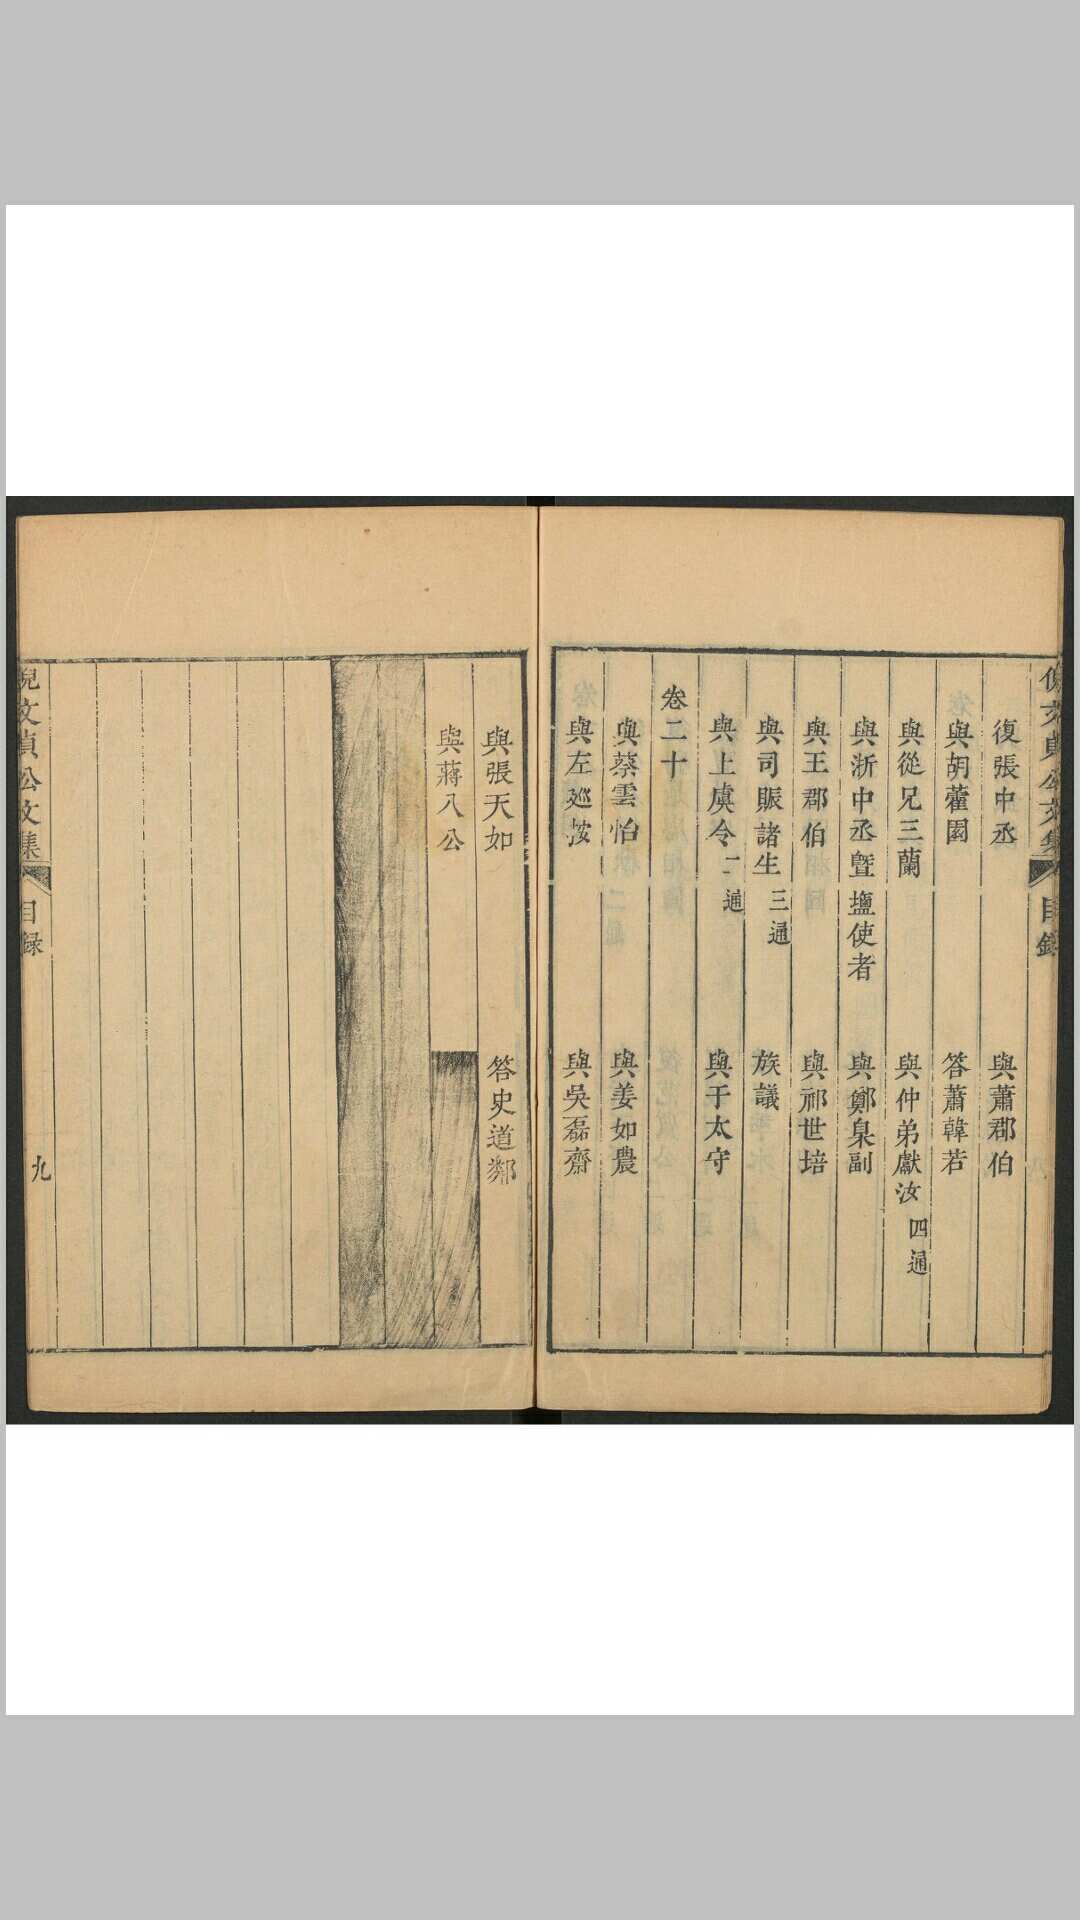 倪文貞公文集
目錄
復張中丞 與蕭郡伯
與胡藿園 答蕭韓若
與從兄三蘭 與仲弟獻汝 四通
與浙中丞曁鹽使者 與鄭臬副
與王郡伯 與祁世培
與司賑諸生 三通 族議
與上虞令 二通 與于太守
卷二十
與蔡雲怡 與姜如農
與左廵按 與吳磊齋
與張天如 答史道鄰
與蔣八公
倪文貞公文集
目録
九